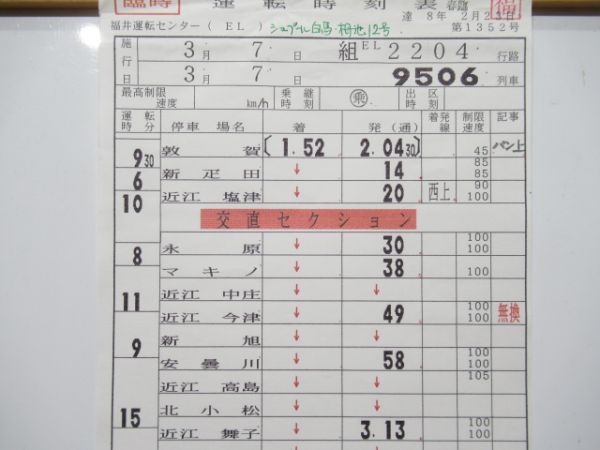 臨時 運転時刻表 春臨 福
達 8年 2月23日
福井運転センター（ EL ） シュプール白馬・栂池12号 第1352号
施行日 3月 7日 組EL2204 行路
3月 7日 9506 列車
最高制限速度 km/h 乗継時刻 乗 出区時刻
運転時分 停車場名 着 発（通） 着発線 制限速度 記事
9 30 敦賀 〔1.52 2.04 30〕 45 パン上
6 新疋田 ↓ 14 85 85
10 近江塩津 ↓ 20 西上 90 100
交直セクション
8 永原 ↓ 30 100 100
マキノ ↓ 38 100
11 近江中庄 ↓ ↓
近江今津 ↓ 49 100 100 無換
9 新旭 ↓ ↓
安曇川 ↓ 58 100 100
近江高島 ↓ ↓ 105
15 北小松 ↓ ↓
近江舞子 ↓ 3.13 100 100